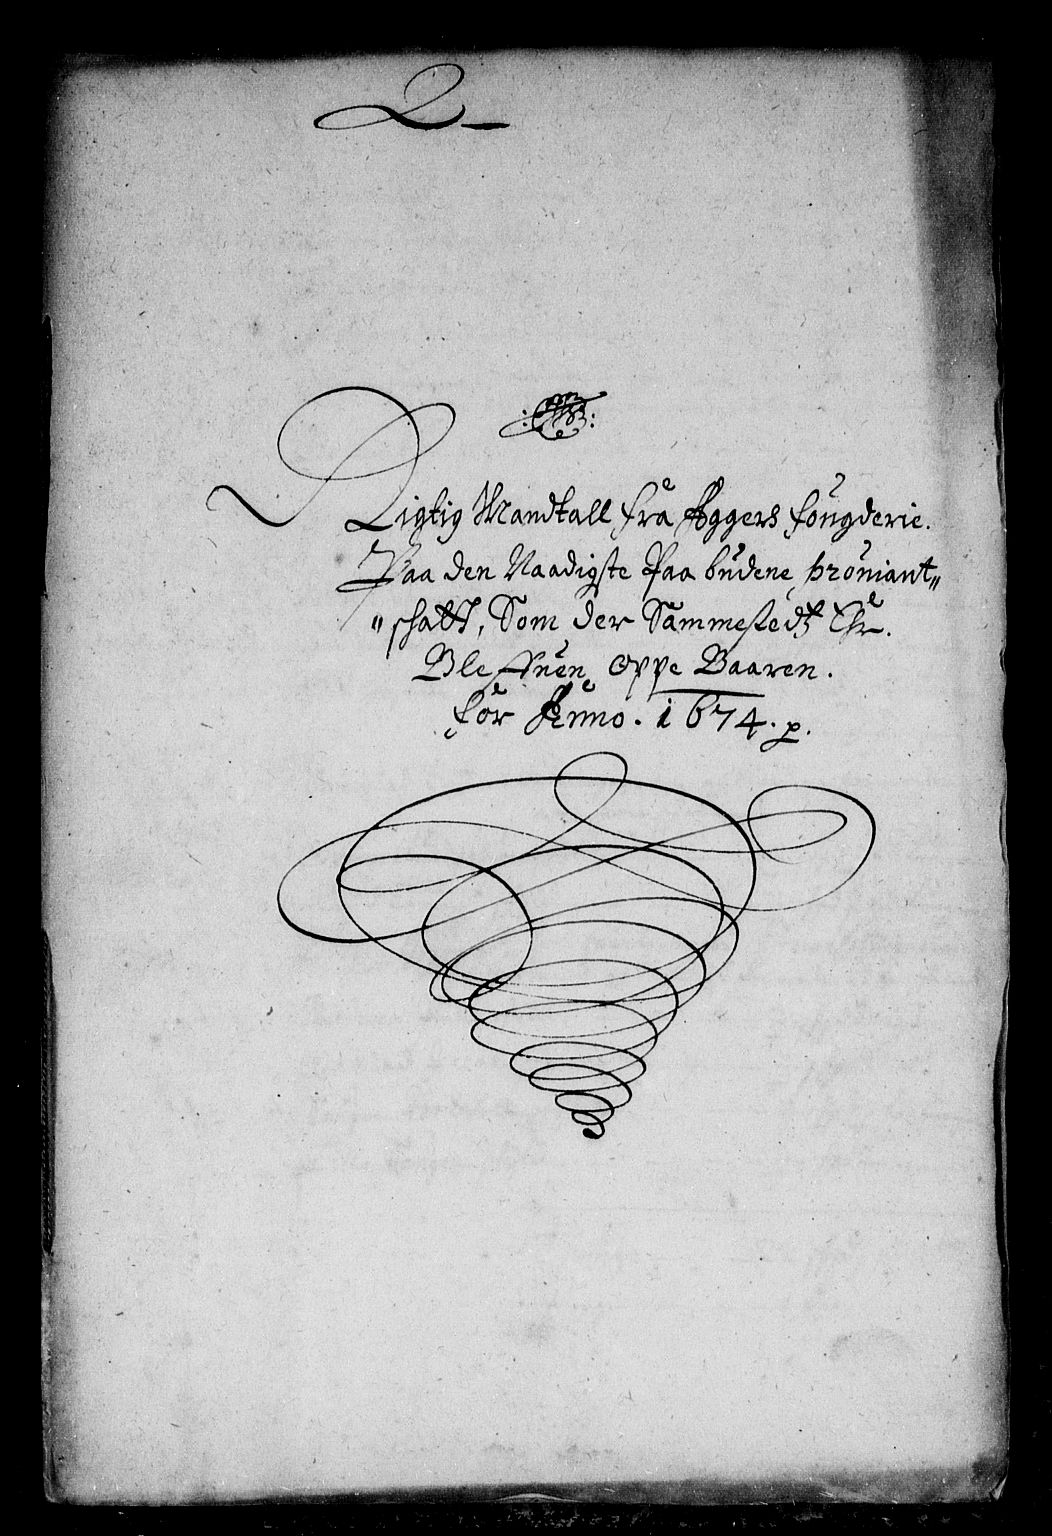 2
Rigtig Mandtall fra Aggers fougderie.
Paa den Naadigste Paa budene prouiant„
„schatt, Som der Sammestedtz Ehr
Bleffuen oppe Baaren.
for Anno. 1674. p.